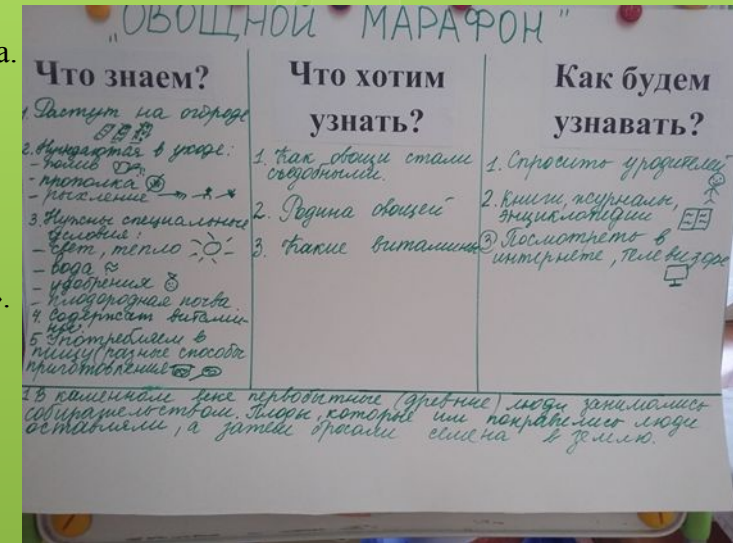 а.
».
"ОВОЩНОЙ МАРАФОН"
Что знаем?
1. Растут на огороде
2. Нуждаются в уходе:
- полив
- прополка
- рыхление
3. Нужны специальные
условия:
- свет, тепло
- вода
- удобрения
- плодородная почва.
4. Содержат витами-
ны.
5 Употребляем в
пищу (разные способы
приготовления
Что хотим
узнать?
1. Как овощи стали
съедобными.
2. Родина овощей
3. Какие витамины
Как будем
узнавать?
1. Спросить у родителей
2. Книги, журналы,
энциклопедии
3 Посмотреть в
интернете, телевизоре
1 В каменном веке первобытные (древние) люди занимались
собирательством. Плоды, которые им понравились люди
оставляли, а затем бросали семена в землю.